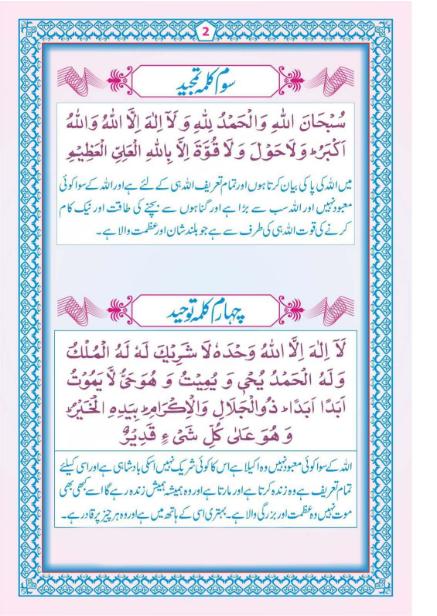 2
سوم کلمہ تمجید
سُبْحَانَ اللهِ وَالْحَمْدُ لِلّٰهِ وَ لَآ اِلٰهَ اِلَّا اللهُ وَاللهُ
اَکْبَرُ ؕ وَلَا حَوْلَ وَلَا قُوَّةَ اِلَّا بِاللهِ الْعَلِیِّ الْعَظِیْمِ
میں اللہ کی پاکی بیان کرتا ہوں اور تمام تعریف اللہ ہی کے لئے ہے اور اللہ کے سوا کوئی
معبود نہیں اور اللہ سب سے بڑا ہے اور گناہوں سے بچنے کی طاقت اور نیک کام
کرنے کی قوت اللہ ہی کی طرف سے ہے جو بلند شان اور عظمت والا ہے۔
چہارم کلمہ توحید
لَآ اِلٰهَ اِلَّا اللهُ وَحْدَهٗ لَا شَرِیْكَ لَهٗ لَهُ الْمُلْكُ
وَلَهُ الْحَمْدُ یُحْیٖ وَ یُمِیْتُ وَ هُوَ حَیٌّ لَّا یَمُوْتُ
اَبَدًا اَبَدًا ؕ ذُوالْجَلَالِ وَالْاِکْرَامِ ؕ بِیَدِهِ الْخَیْرُ ؕ
وَ هُوَ عَلٰی کُلِّ شَیْ ءٍ قَدِیْرٌ ؕ
اللہ کے سوا کوئی معبود نہیں وہ اکیلا ہے اس کا کوئی شریک نہیں اسکی بادشاہی ہے اور اسی کیلئے
تمام تعریف ہے وہ زندہ کرتا ہے اور مارتا ہے اور وہ ہمیشہ ہمیش زندہ رہے گا اسے کبھی بھی
موت نہیں وہ عظمت اور بزرگی والا ہے۔ بہتری اسی کے ہاتھ میں ہے اور وہ ہر چیز پر قادر ہے۔